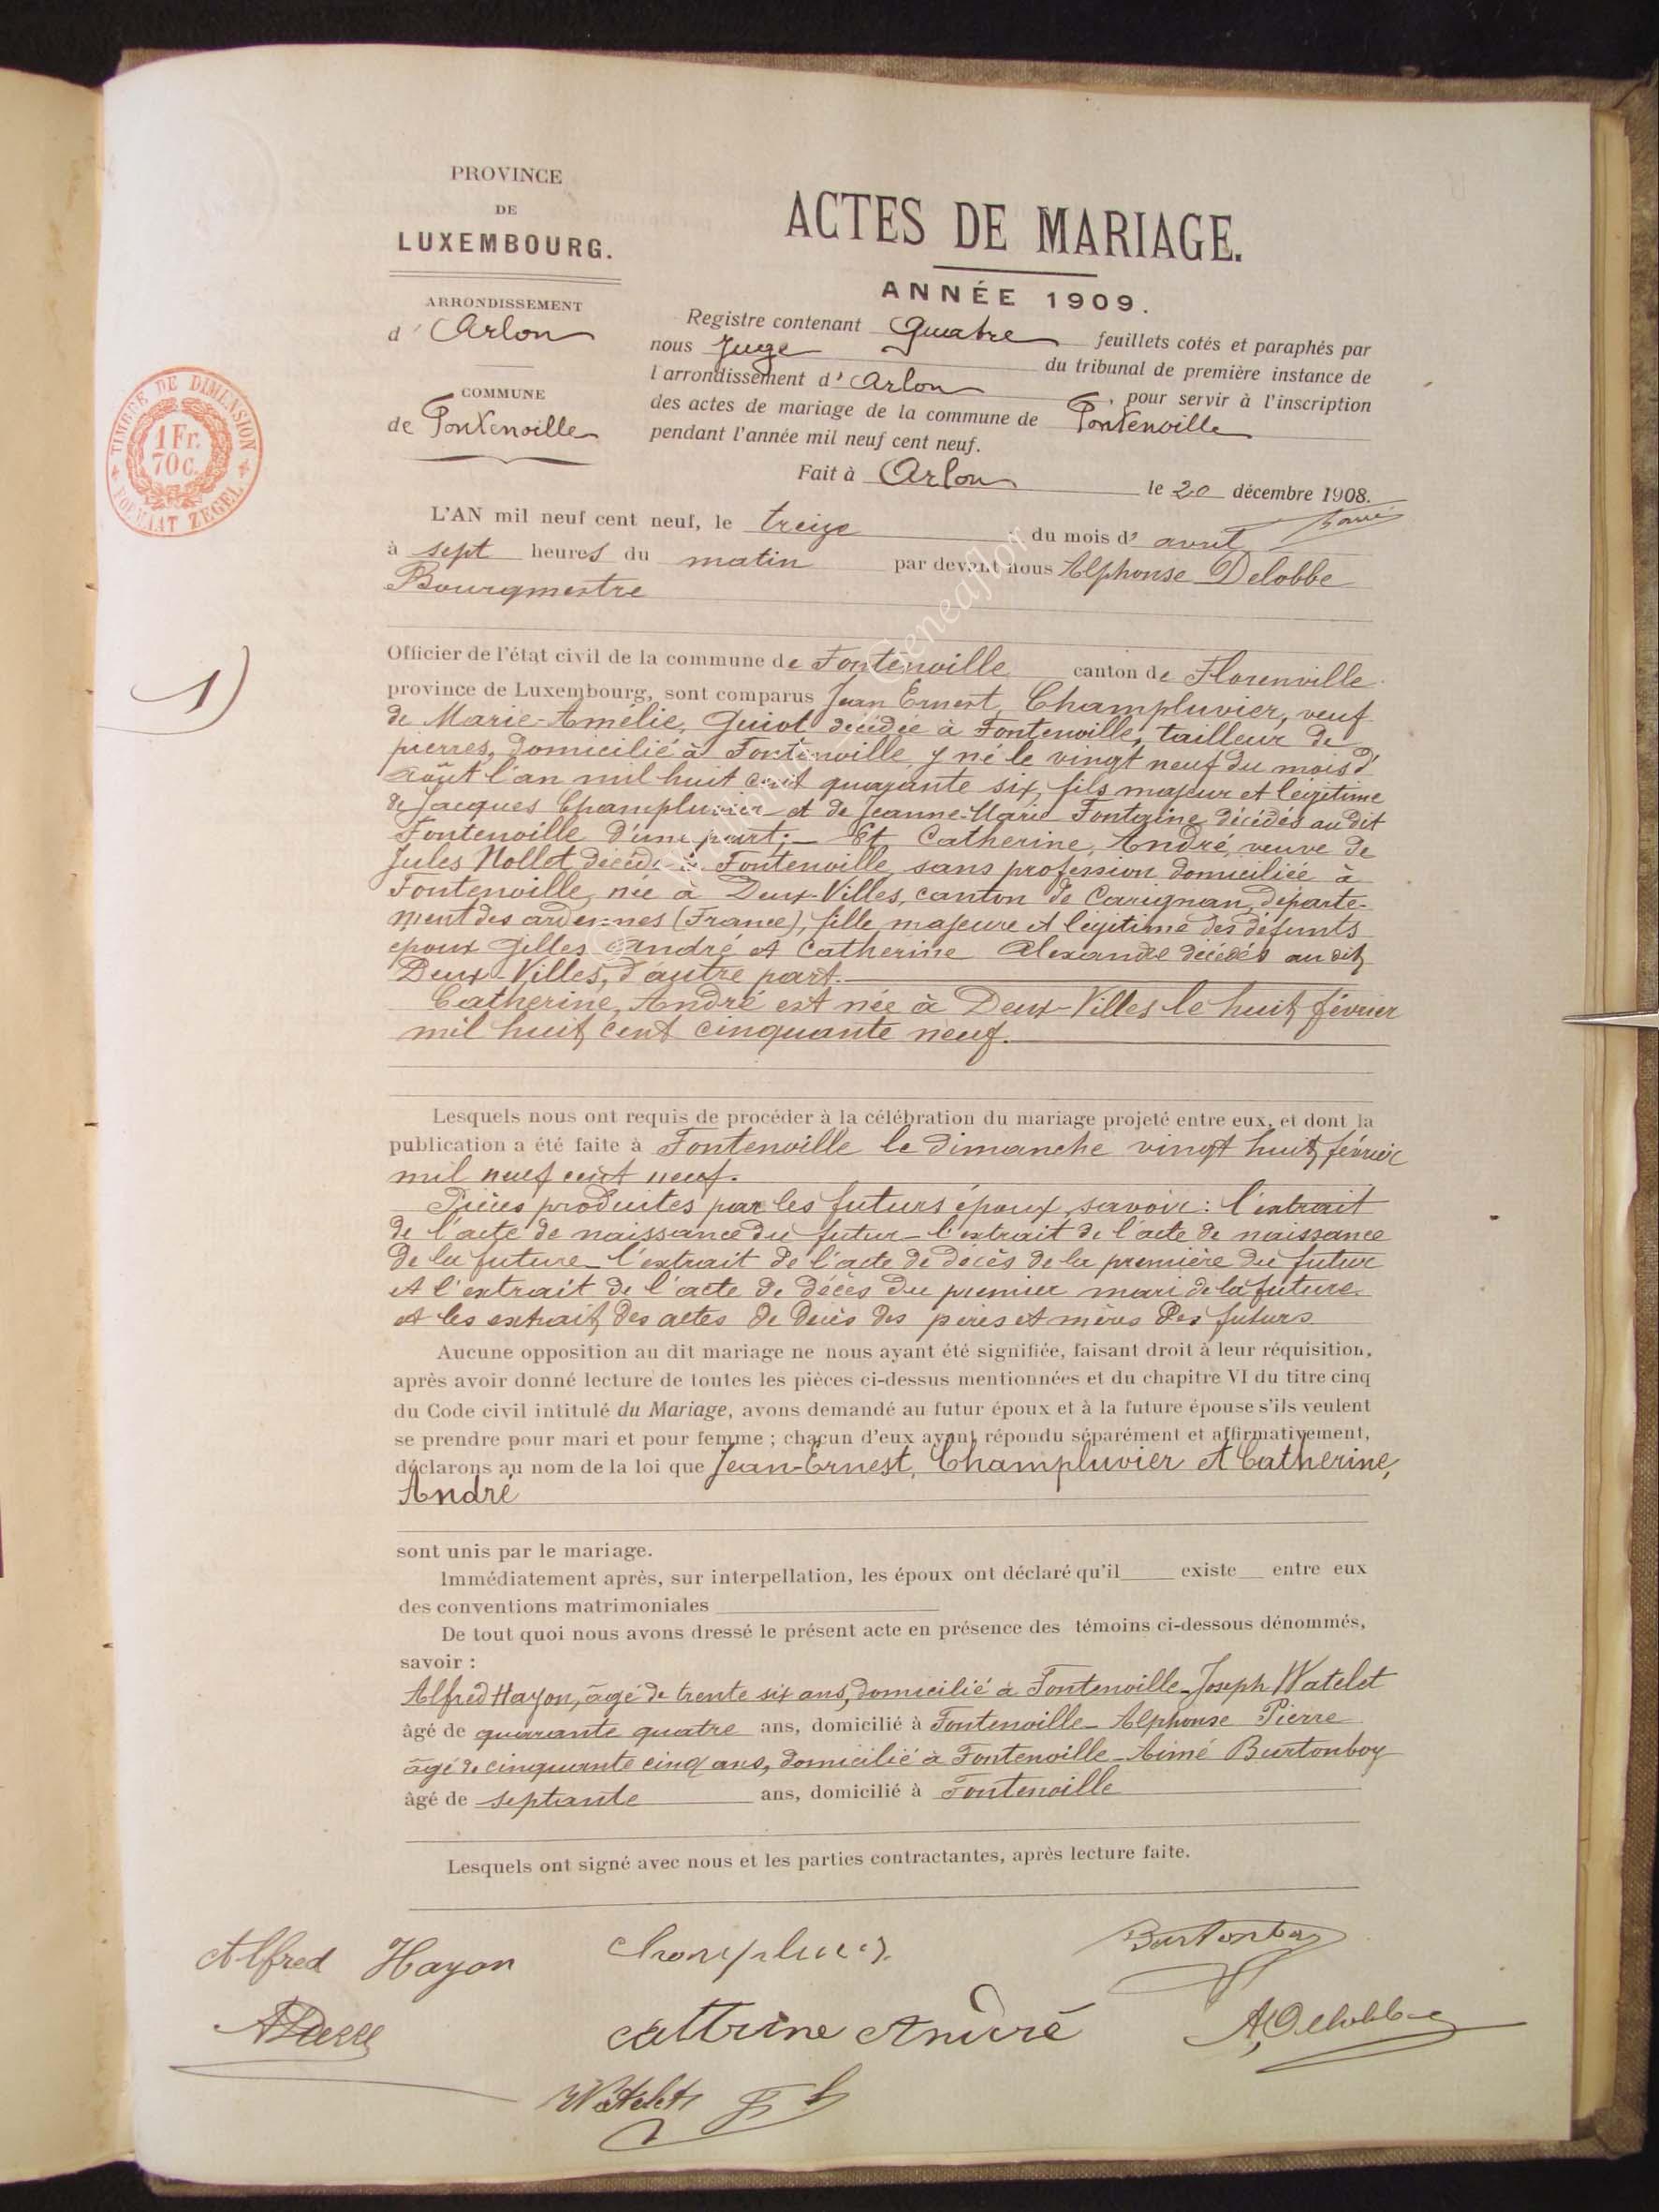 PROVINCE
DE
LUXEMBOURG.
ARRONDISSEMENT
d' Arlon
COMMUNE
de Fontenoille
TIMBRE DE DIMENSION
1 Fr.
70 c.
FORMAAT ZEGEL
ACTES DE MARIAGE.
ANNÉE 1909.
Registre contenant Quatre feuillets cotés et paraphés par
nous Juge du tribunal de première instance de
l'arrondissement d' Arlon, pour servir à l'inscription
des actes de mariage de la commune de Fontenoille
pendant l'année mil neuf cent neuf.
Fait à Arlon le 20 décembre 1908.
L'AN mil neuf cent neuf, le treize du mois d' avril
à sept heures du matin par devant nous Alphonse Delobbe
Bourgmestre
1)
Officier de l'état civil de la commune de Fontenoille canton de Florenville
province de Luxembourg, sont comparus Jean Ernest, Champluvier, veuf
de Marie-Amélie, Guiot décédée à Fontenoille, tailleur de
pierres, domicilié à Fontenoille, y né le vingt neuf du mois d'
août l'an mil huit cent quarante six, fils majeur et légitime
de Jacques Champluvier et de Jeanne-Marie Fontaine décédés au dit
Fontenoille d'une part; - Et Catherine, André, veuve de
Jules Nollet, décédé à Fontenoille, sans profession domiciliée à
Fontenoille, née à Deux-Villes, canton de Carignan, départe-
ment des ardennes (France), fille majeure et légitime des défunts
époux Gilles André et Catherine Alexandre décédés au dit
Deux-Villes, d'autre part.
Catherine, André est née à Deux-Villes le huit février
mil huit cent cinquante neuf.
Lesquels nous ont requis de procéder à la célébration du mariage projeté entre eux, et dont la
publication a été faite à Fontenoille le dimanche vingt huit février
mil neuf cent neuf.
Pièces produites par les futurs époux, savoir : l'extrait
de l'acte de naissance du futur - l'extrait de l'acte de naissance
de la future - l'extrait de l'acte de décès de la première du futur
et l'extrait de l'acte de décès du premier mari de la future
et les extrait des actes de décès des pères et mères des futurs
Aucune opposition au dit mariage ne nous ayant été signifiée, faisant droit à leur réquisition,
après avoir donné lecture de toutes les pièces ci-dessus mentionnées et du chapitre VI du titre cinq
du Code civil intitulé du Mariage, avons demandé au futur époux et à la future épouse s'ils veulent
se prendre pour mari et pour femme ; chacun d'eux ayant répondu séparément et affirmativement,
déclarons au nom de la loi que Jean-Ernest, Champluvier et Catherine,
André
sont unis par le mariage.
Immédiatement après, sur interpellation, les époux ont déclaré qu'il existe entre eux
des conventions matrimoniales
De tout quoi nous avons dressé le présent acte en présence des témoins ci-dessous dénommés,
savoir :
Alfred Hayon, âgé de trente six ans, domicilié à Fontenoille - Joseph Watelet
âgé de quarante quatre ans, domicilié à Fontenoille - Alphonse Pierre
âgé de cinquante cinq ans, domicilié à Fontenoille - Aimé Burtonboy
âgé de septante ans, domicilié à Fontenoille
Lesquels ont signé avec nous et les parties contractantes, après lecture faite.
Alfred Hayon
Burtonboy
cattrine André
A, Delobbe
Watelet